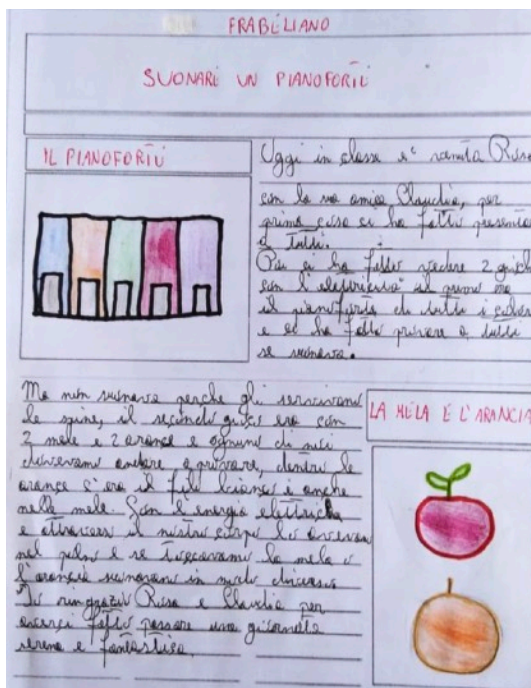 FRABELIANO
SUONARE UN PIANOFORTE
IL PIANOFORTE
Oggi in classe e' venuta Rosa
con la sua amica Claudia, per
prima cosa ci ha fatto presentare
a tutti.
Poi ci ha fatto vedere 2 giochi
con l'elettricità il primo era
il pianoforte di tutti i colori
e ci ha fatto provare a tutti
se suonava.
Ma non suonava perche gli servivano
le spine, il secondo gioco era con
2 mele e 2 arance e ognuno di noi
dovevamo andare a provare, dentro le
arance c'era il filo bianco e anche
nelle mele. Con l'energia elettriche
e attraverso il nostro corpo lo avevamo
nel polso e se toccavamo la mela o
l'arancia suonavano in modo diverso
Io ringrazio Rosa e Claudia per
averci fatto passare una giornata
serena e fantastica.
LA MELA E L'ARANCIA